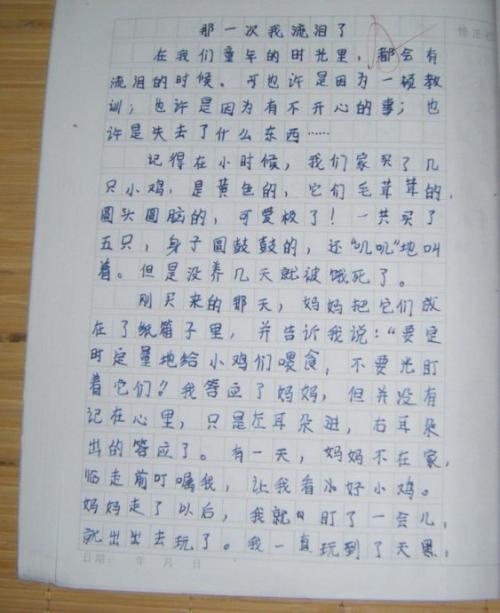 那一次我流泪了
在我们童年的时光里，都会有
流泪的时候。可也许是因为一顿教
训；也许是因为有不开心的事；也
许是失去了什么东西……
记得在小时候，我们家买了几
只小鸡，是黄色的，它们毛茸茸的，
圆头圆脑的，可爱极了！一共买了
五只，身子圆鼓鼓的，还“叽叽”地叫
着。但是没养几天就被饿死了。
刚买来的那天，妈妈把它们放
在了纸箱子里，并告诉我说：“要定
时定量地给小鸡们喂食，不要光盯
着它们？我答应了妈妈，但并没有
记在心里，只是左耳朵进，右耳朵
出的答应了。有一天，妈妈不在家，
临走前叮嘱我，让我看好小鸡。
妈妈走了以后，我就盯了一会儿，
就出出去玩了。我一直玩到了天黑，
日期： 年 月 日